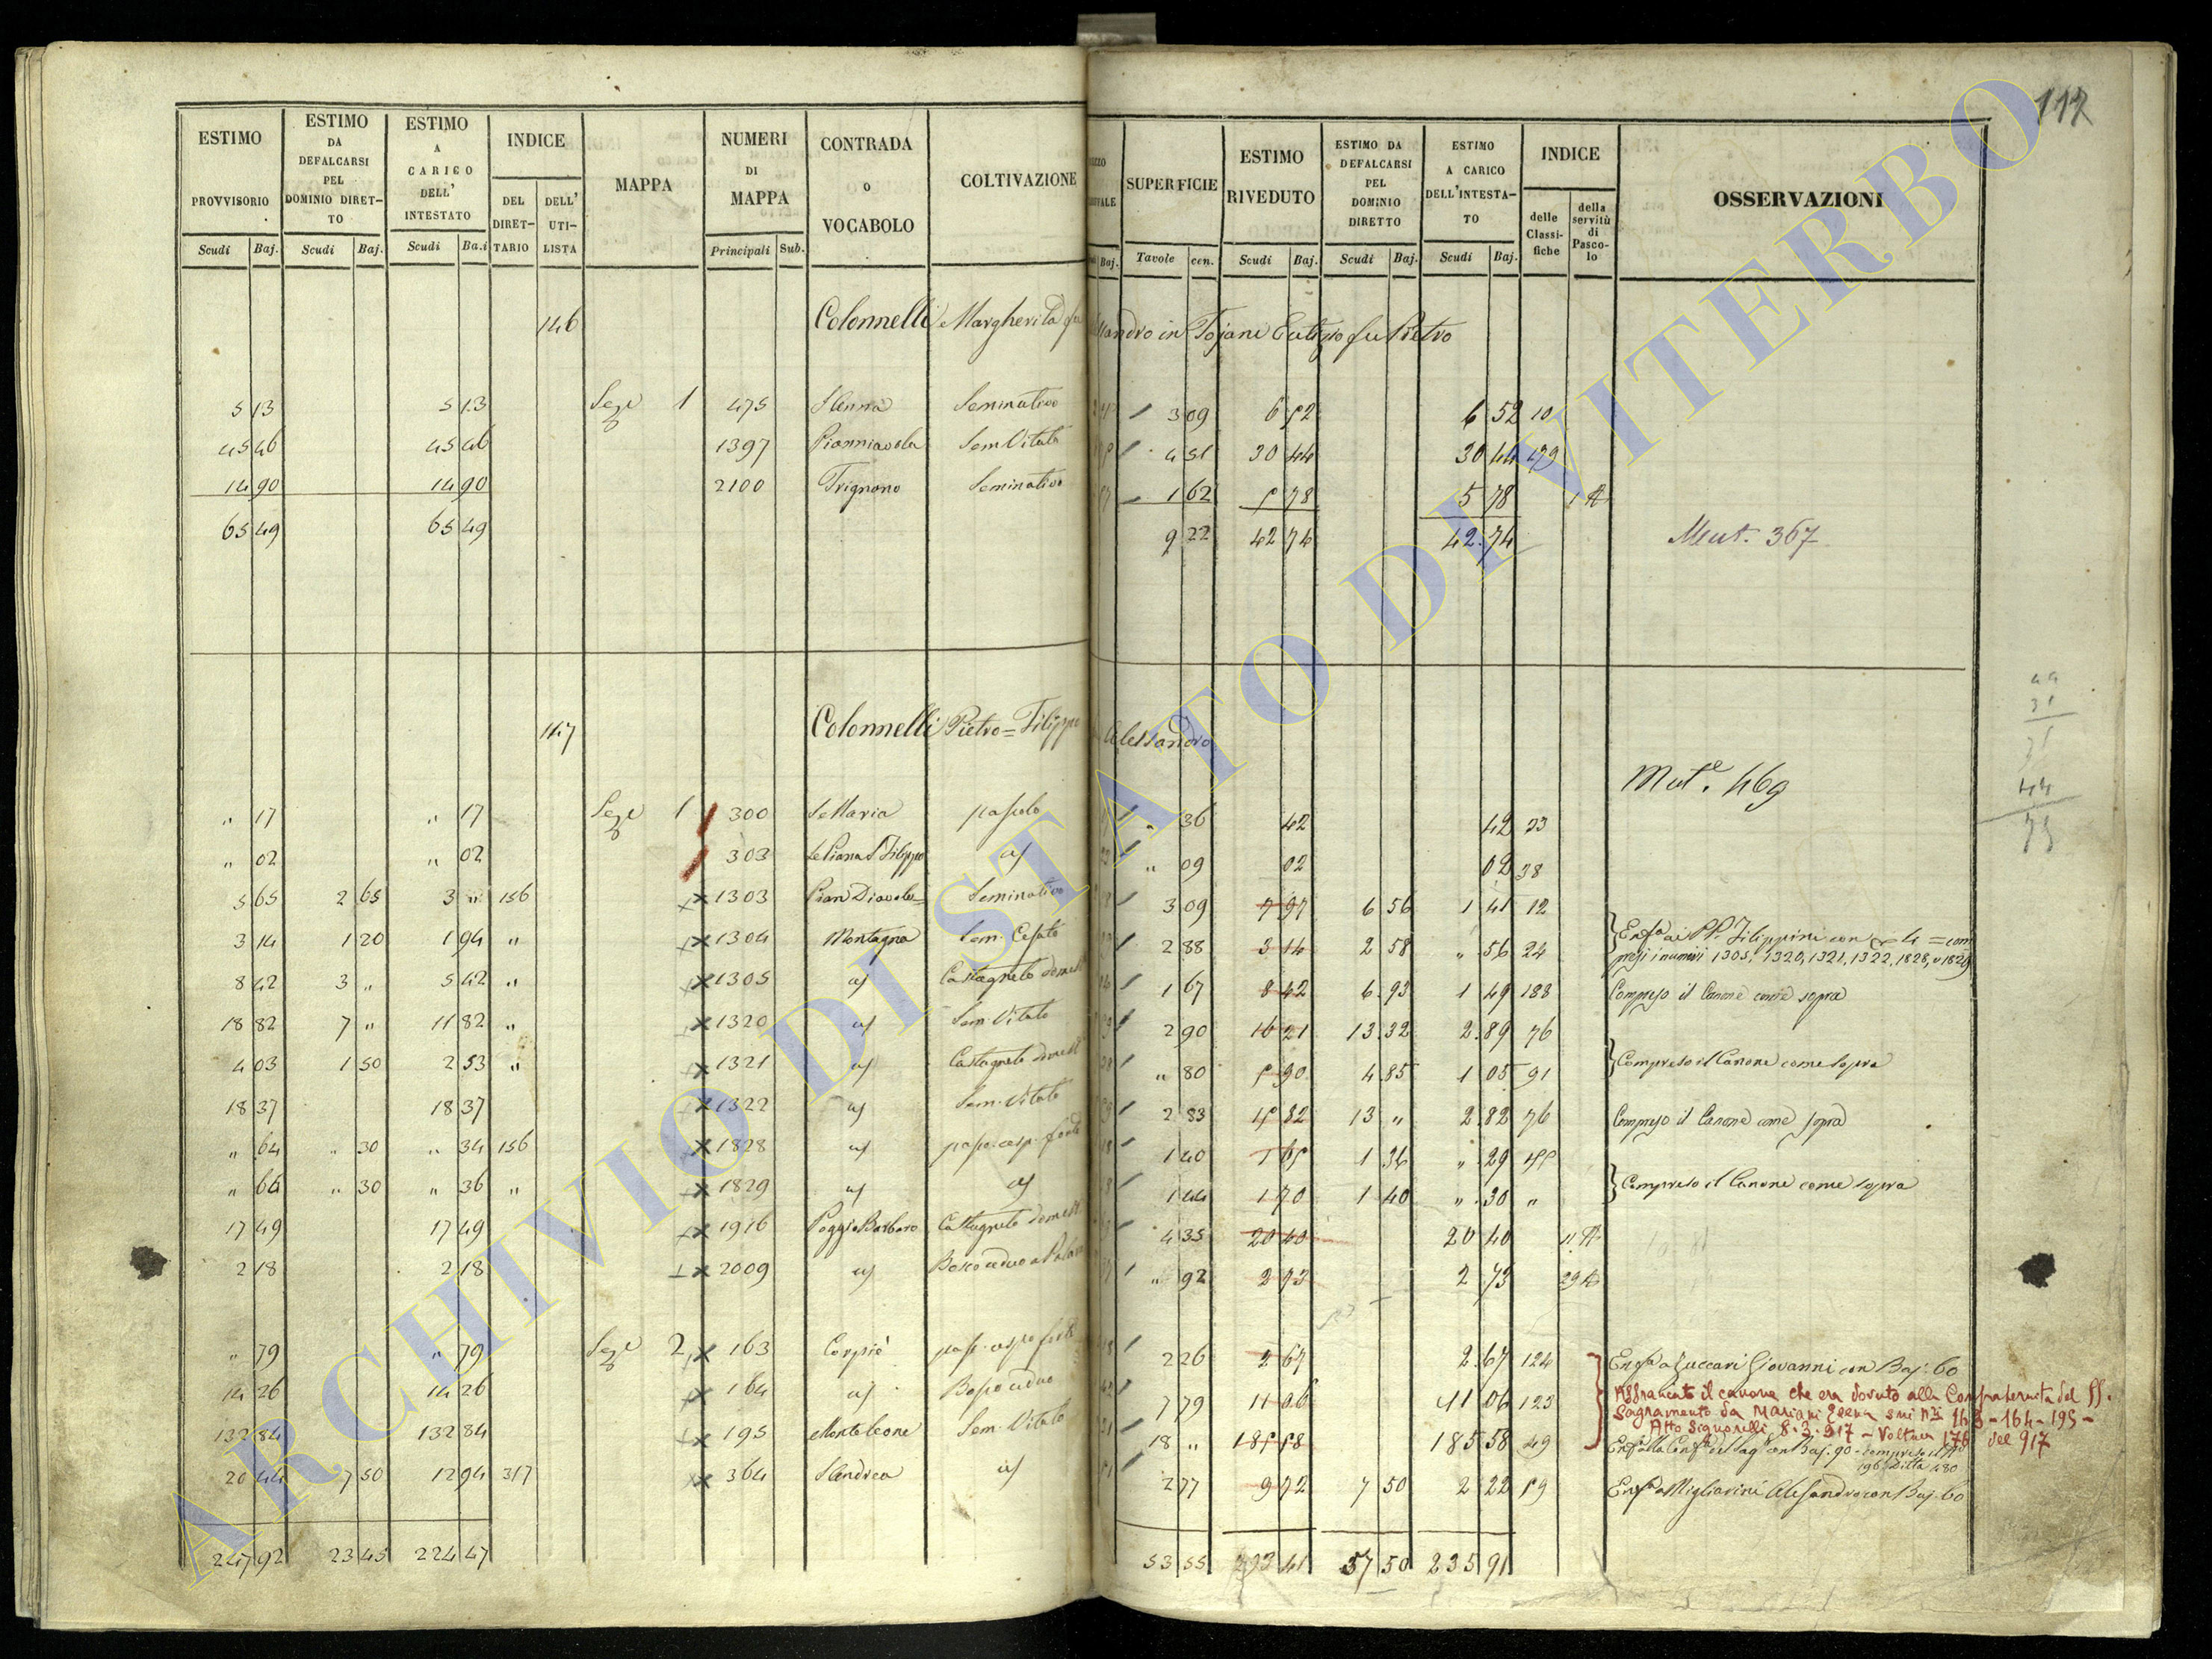 117
ESTIMO PROVVISORIO Scudi Baj.
ESTIMO DA DEFALCARSI PEL DOMINIO DIRETTO Scudi Baj.
ESTIMO A CARICO DELL' INTESTATO Scudi Ba.i
INDICE DEL DIRETTARIO DELL' UTILISTA
MAPPA
NUMERI DI MAPPA Principali Sub.
CONTRADA O VOCABOLO
COLTIVAZIONE
Baj.
SUPERFICIE Tavole cen.
ESTIMO RIVEDUTO Scudi Baj.
ESTIMO DA DEFALCARSI PEL DOMINIO DIRETTO Scudi Baj.
ESTIMO A CARICO DELL'INTESTATO Scudi Baj.
INDICE delle Classifiche della servitù di Pascolo
OSSERVAZIONI
146 Colonnelli Margherita in Tojani Eutizio fu Pietro
5 13 5 13 Seze 1 475 Seminativo 3 09 6 52 6 52 10
45 46 45 46 1397 Sem Vitato 4 51 30 44 30 44 179
14 90 14 90 2100 Trignano Seminativo 1 62 5 78 5 78
65 49 65 49 9 22 42 74 42 74
Mut. 367
147 Colonnelli Pietro = Filippo Alessandro
Mut.e 469
" 17 " 17 Seze 1 300 S Maria pascolo " 36 42 42 23
" 02 " 02 303 S Filippo " 09 02 02 38
5 65 2 65 3 " 156 1303 Pian Diavolo Seminativo 3 09 7 97 6 56 1 41 12
3 14 1 20 1 94 " 1304 Montagna Sem. Cesato 2 88 3 14 2 58 " 56 24 Enf.a ai PP. Filippini con
presi i numeri 1305, 1320, 1321, 1322, 1828, e 1829
8 42 3 " 5 42 " 1305 Castagneto 1 67 8 42 6 93 1 49 188 Compreso il Canone come sopra
18 82 7 " 11 82 " 1320 Sem Vitato 2 90 16 21 13 32 2 89 76
4 03 1 50 2 53 " 1321 Castagneto " 80 5 90 4 85 1 05 91 Compreso il Canone come sopra
18 37 18 37 1322 Sem. Vitato 2 83 15 82 13 " 2 82 76 Compreso il Canone come sopra
" 64 " 30 " 34 156 1828 1 40 1 65 1 36 " 29
" 66 " 30 " 36 " 1829 1 44 1 70 1 40 " 30 " Compreso il Canone come sopra
17 49 17 49 1916 Poggio Barbaro Castagneto 4 35 20 40 20 40
2 18 2 18 2009 Bosco ceduo " 92 2 73 2 73
" 79 " 79 Seze 2 163 2 26 2 67 2 67 124 Enf.a a Zuccari Giovanni con Baj: 60
14 26 14 26 164 Bosco ceduo 7 79 11 06 11 06 123
Affrancato il canone che era dovuto alla Confraternita del SS.
Sagramento da Mariani sui N.i 163 - 164 - 195 -
Atto Signorelli 8.3.917 - Voltura 176 del 917
132 84 132 84 195 Monteleone Sem. Vitato 18 " 185 58 185 58 49
20 44 7 50 12 94 317 364 S Andrea 2 77 9 72 7 50 2 22 59 Enf.a a Migliorini Alessandro con Baj. 60
247 92 23 45 224 47 53 55 293 41 57 50 235 91
44
31
44
75
ARCHIVIO DI STATO DI VITERBO